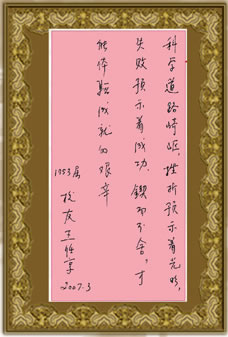 科学道路崎岖，挫折预示着光明，
失败预示着成功。锲而不舍，才
能体验成就的艰辛
1953届
校友王任享
2007.3